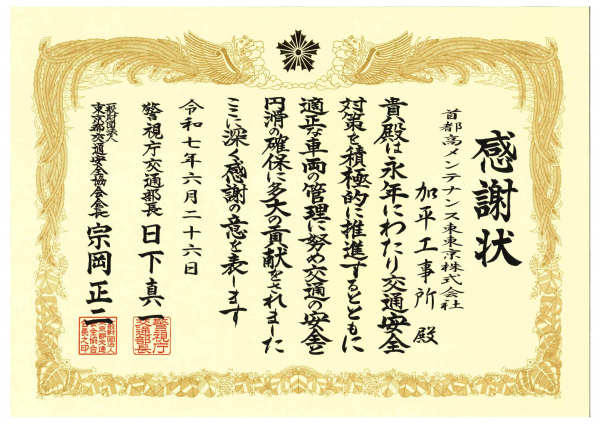 感謝状
首都高メンテナンス東東京株式会社
加平工事所 殿
貴殿は永年にわたり交通安全
対策を積極的に推進するとともに
適正な車両の管理に努め交通の安全と
円滑の確保に多大の貢献をされました
ここに深く感謝の意を表します
令和七年六月二十六日
警視庁交通部長 日下真一
警視庁
交通部長
一般財団法人
東京都交通安全協会会長 宗岡正二